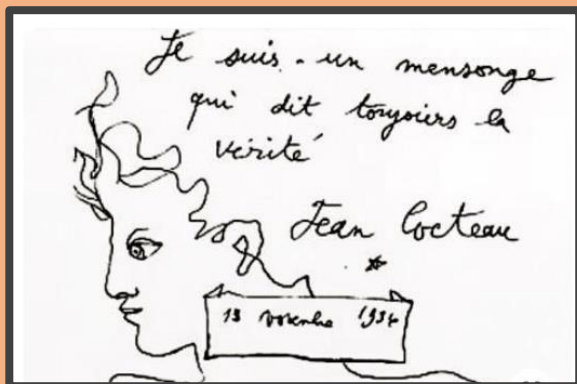 Je suis un mensonge
qui dit toujours la
vérité
Jean Cocteau
13 novembre 1934